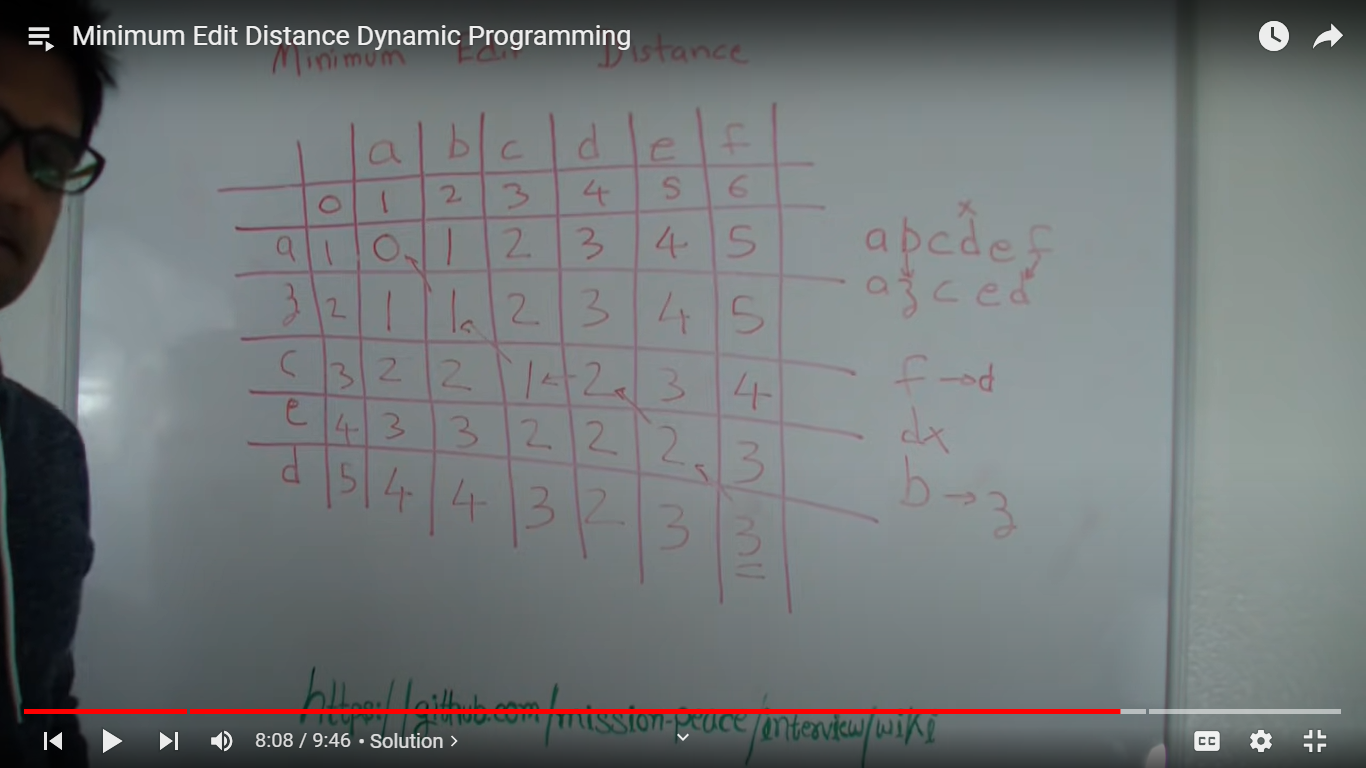 Minimum Edit Distance Dynamic Programming
Minimum Edit Distance
a b c d e f
0 1 2 3 4 5 6
a 1 0 1 2 3 4 5
z 2 1 1 2 3 4 5
c 3 2 2 1 ← 2 3 4
e 4 3 3 2 2 2 3
d 5 4 4 3 2 3 3
x
a b c d e f
a z c e d
f → d
dx
b → z
https://github.com/mission-peace/interview/wiki
8:08 / 9:46 • Solution >
CC